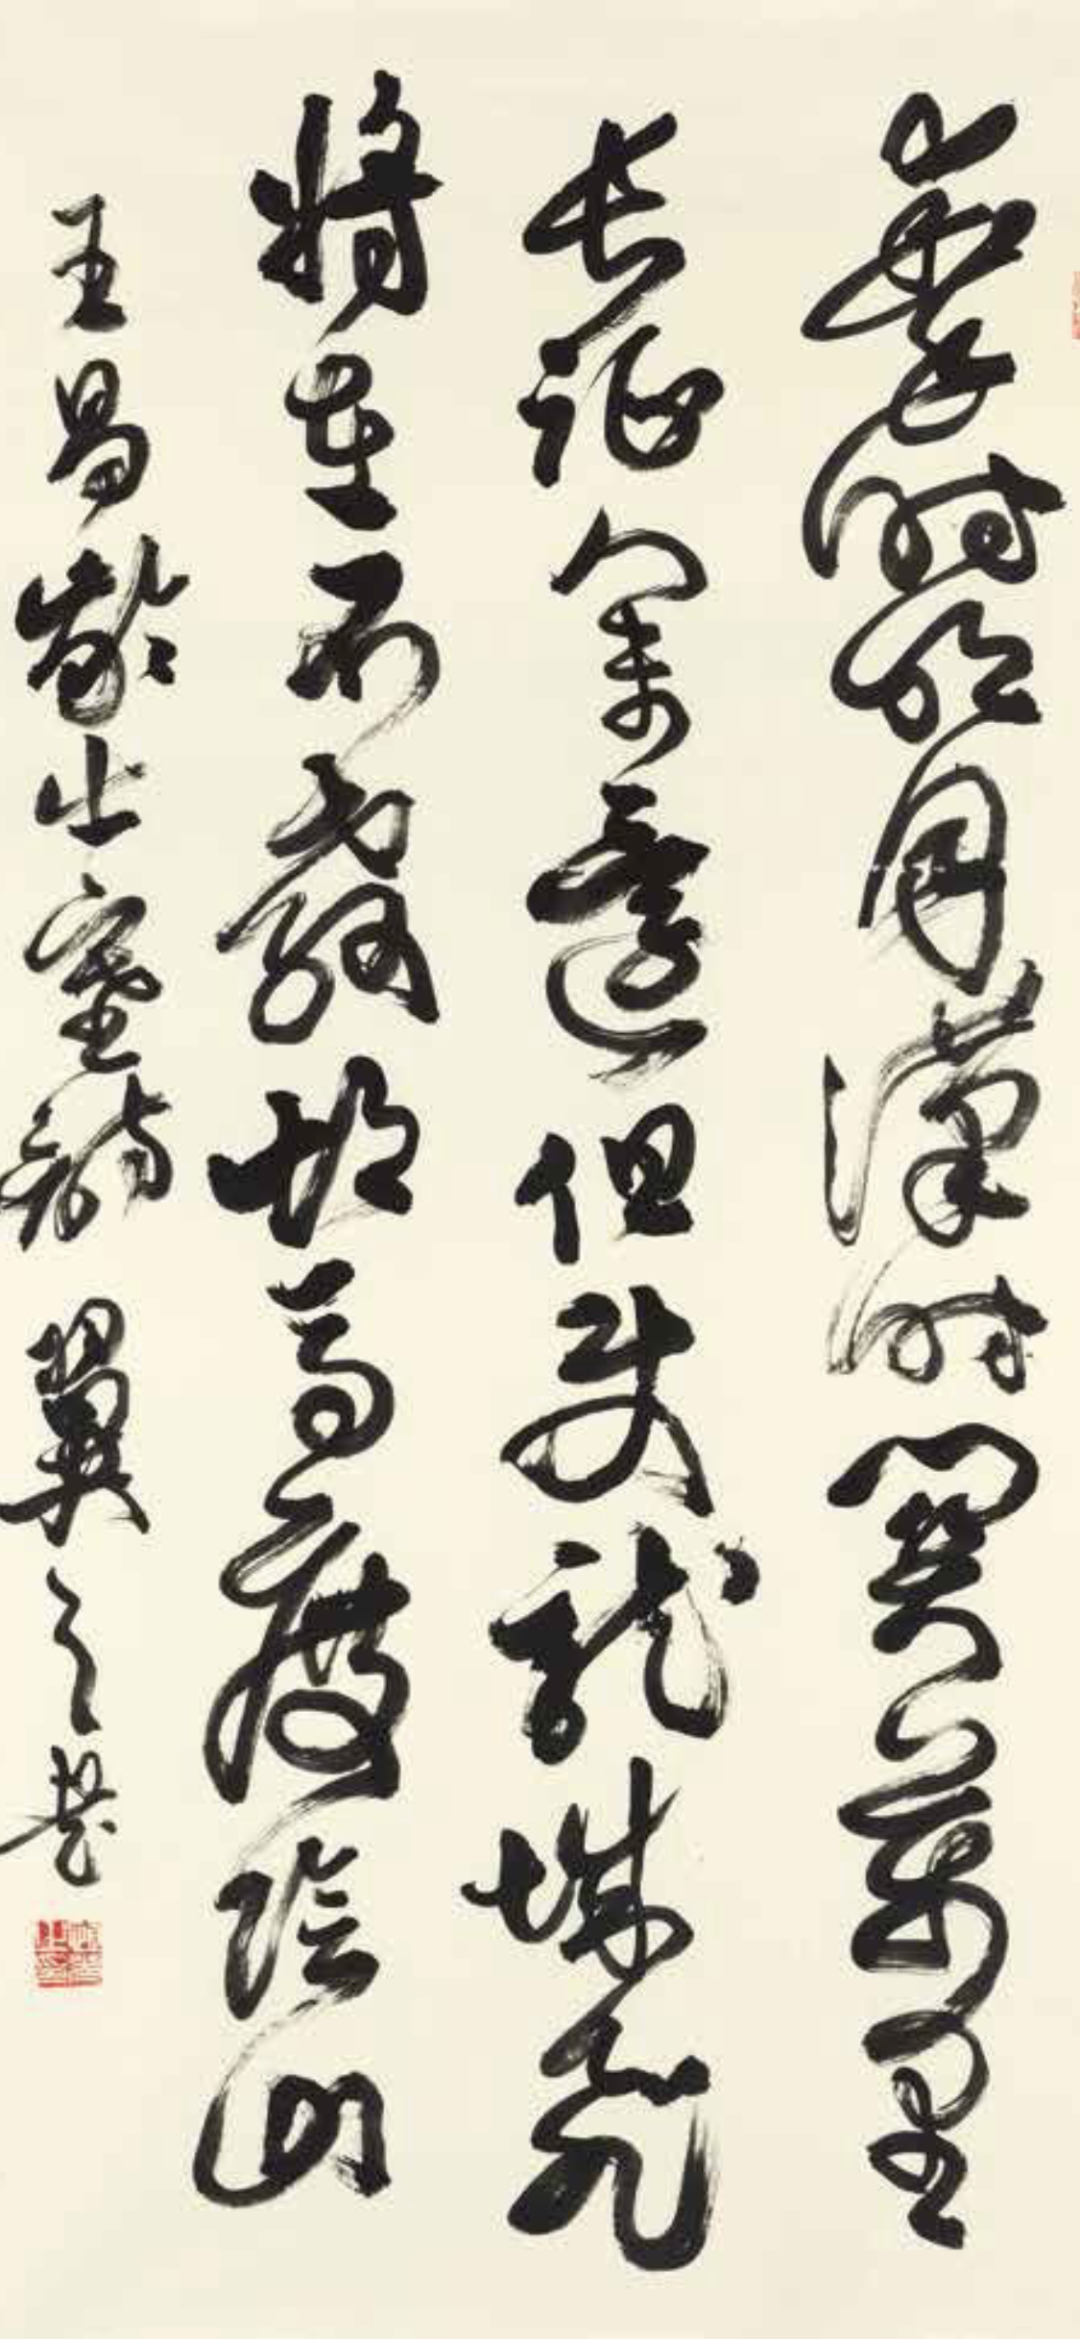 秦時明月漢時關萬里
長征人未還但使龍城飛
將在不教胡馬度陰山
王昌齡出塞詩 翼之